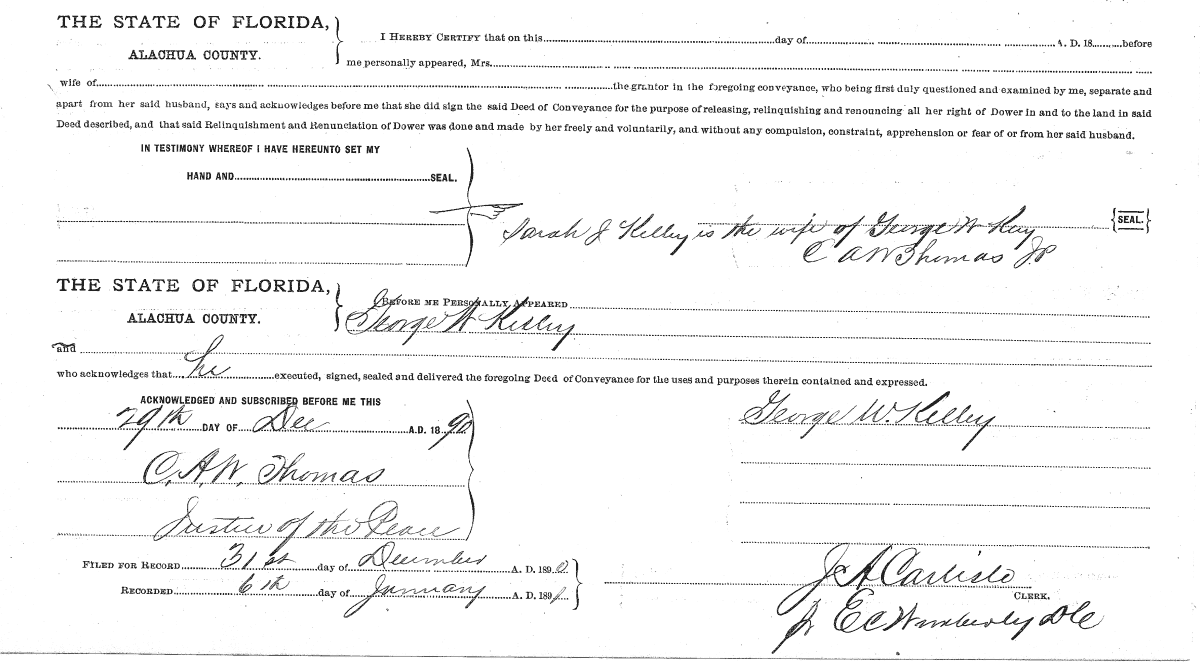 THE STATE OF FLORIDA,
ALACHUA COUNTY.
I HEREBY CERTIFY that on this day of A. D. 18 before
me personally appeared, Mrs.
wife of the grantor in the foregoing conveyance, who being first duly questioned and examined by me, separate and
apart from her said husband, says and acknowledges before me that she did sign the said Deed of Conveyance for the purpose of releasing, relinquishing and renouncing all her right of Dower in and to the land in said
Deed described, and that said Relinquishment and Renunciation of Dower was done and made by her freely and voluntarily, and without any compulsion, constraint, apprehension or fear of or from her said husband.
IN TESTIMONY WHEREOF I HAVE HEREUNTO SET MY
HAND AND SEAL.
Sarah J Kelley is the wife of George W {SEAL.}
C A W Thomas JP
THE STATE OF FLORIDA,
ALACHUA COUNTY.
BEFORE ME PERSONALLY APPEARED
George W Kelley
and
who acknowledges that he executed, signed, sealed and delivered the foregoing Deed of Conveyance for the uses and purposes therein contained and expressed.
ACKNOWLEDGED AND SUBSCRIBED BEFORE ME THIS
29th DAY OF Dec A.D. 18 90
George W. Kelley
C. A. W. Thomas
Justice of the Peace
FILED FOR RECORD 31st day of December A. D. 1890
RECORDED 6th day of January A. D. 1891
J A Carlisle
CLERK.
E C Wimberly DC